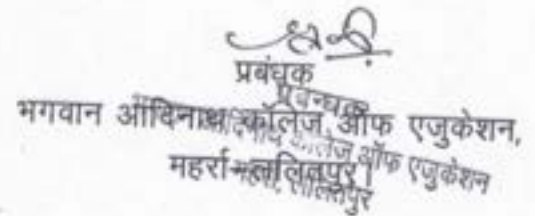 प्रबंधक
भगवान आदिनाथ कॉलेज ऑफ एजुकेशन,
महर्रा-ललितपुर।
प्रबन्धक
आदिनाथ कालेज ऑफ एजुकेशन
महर्रा, ललितपुर